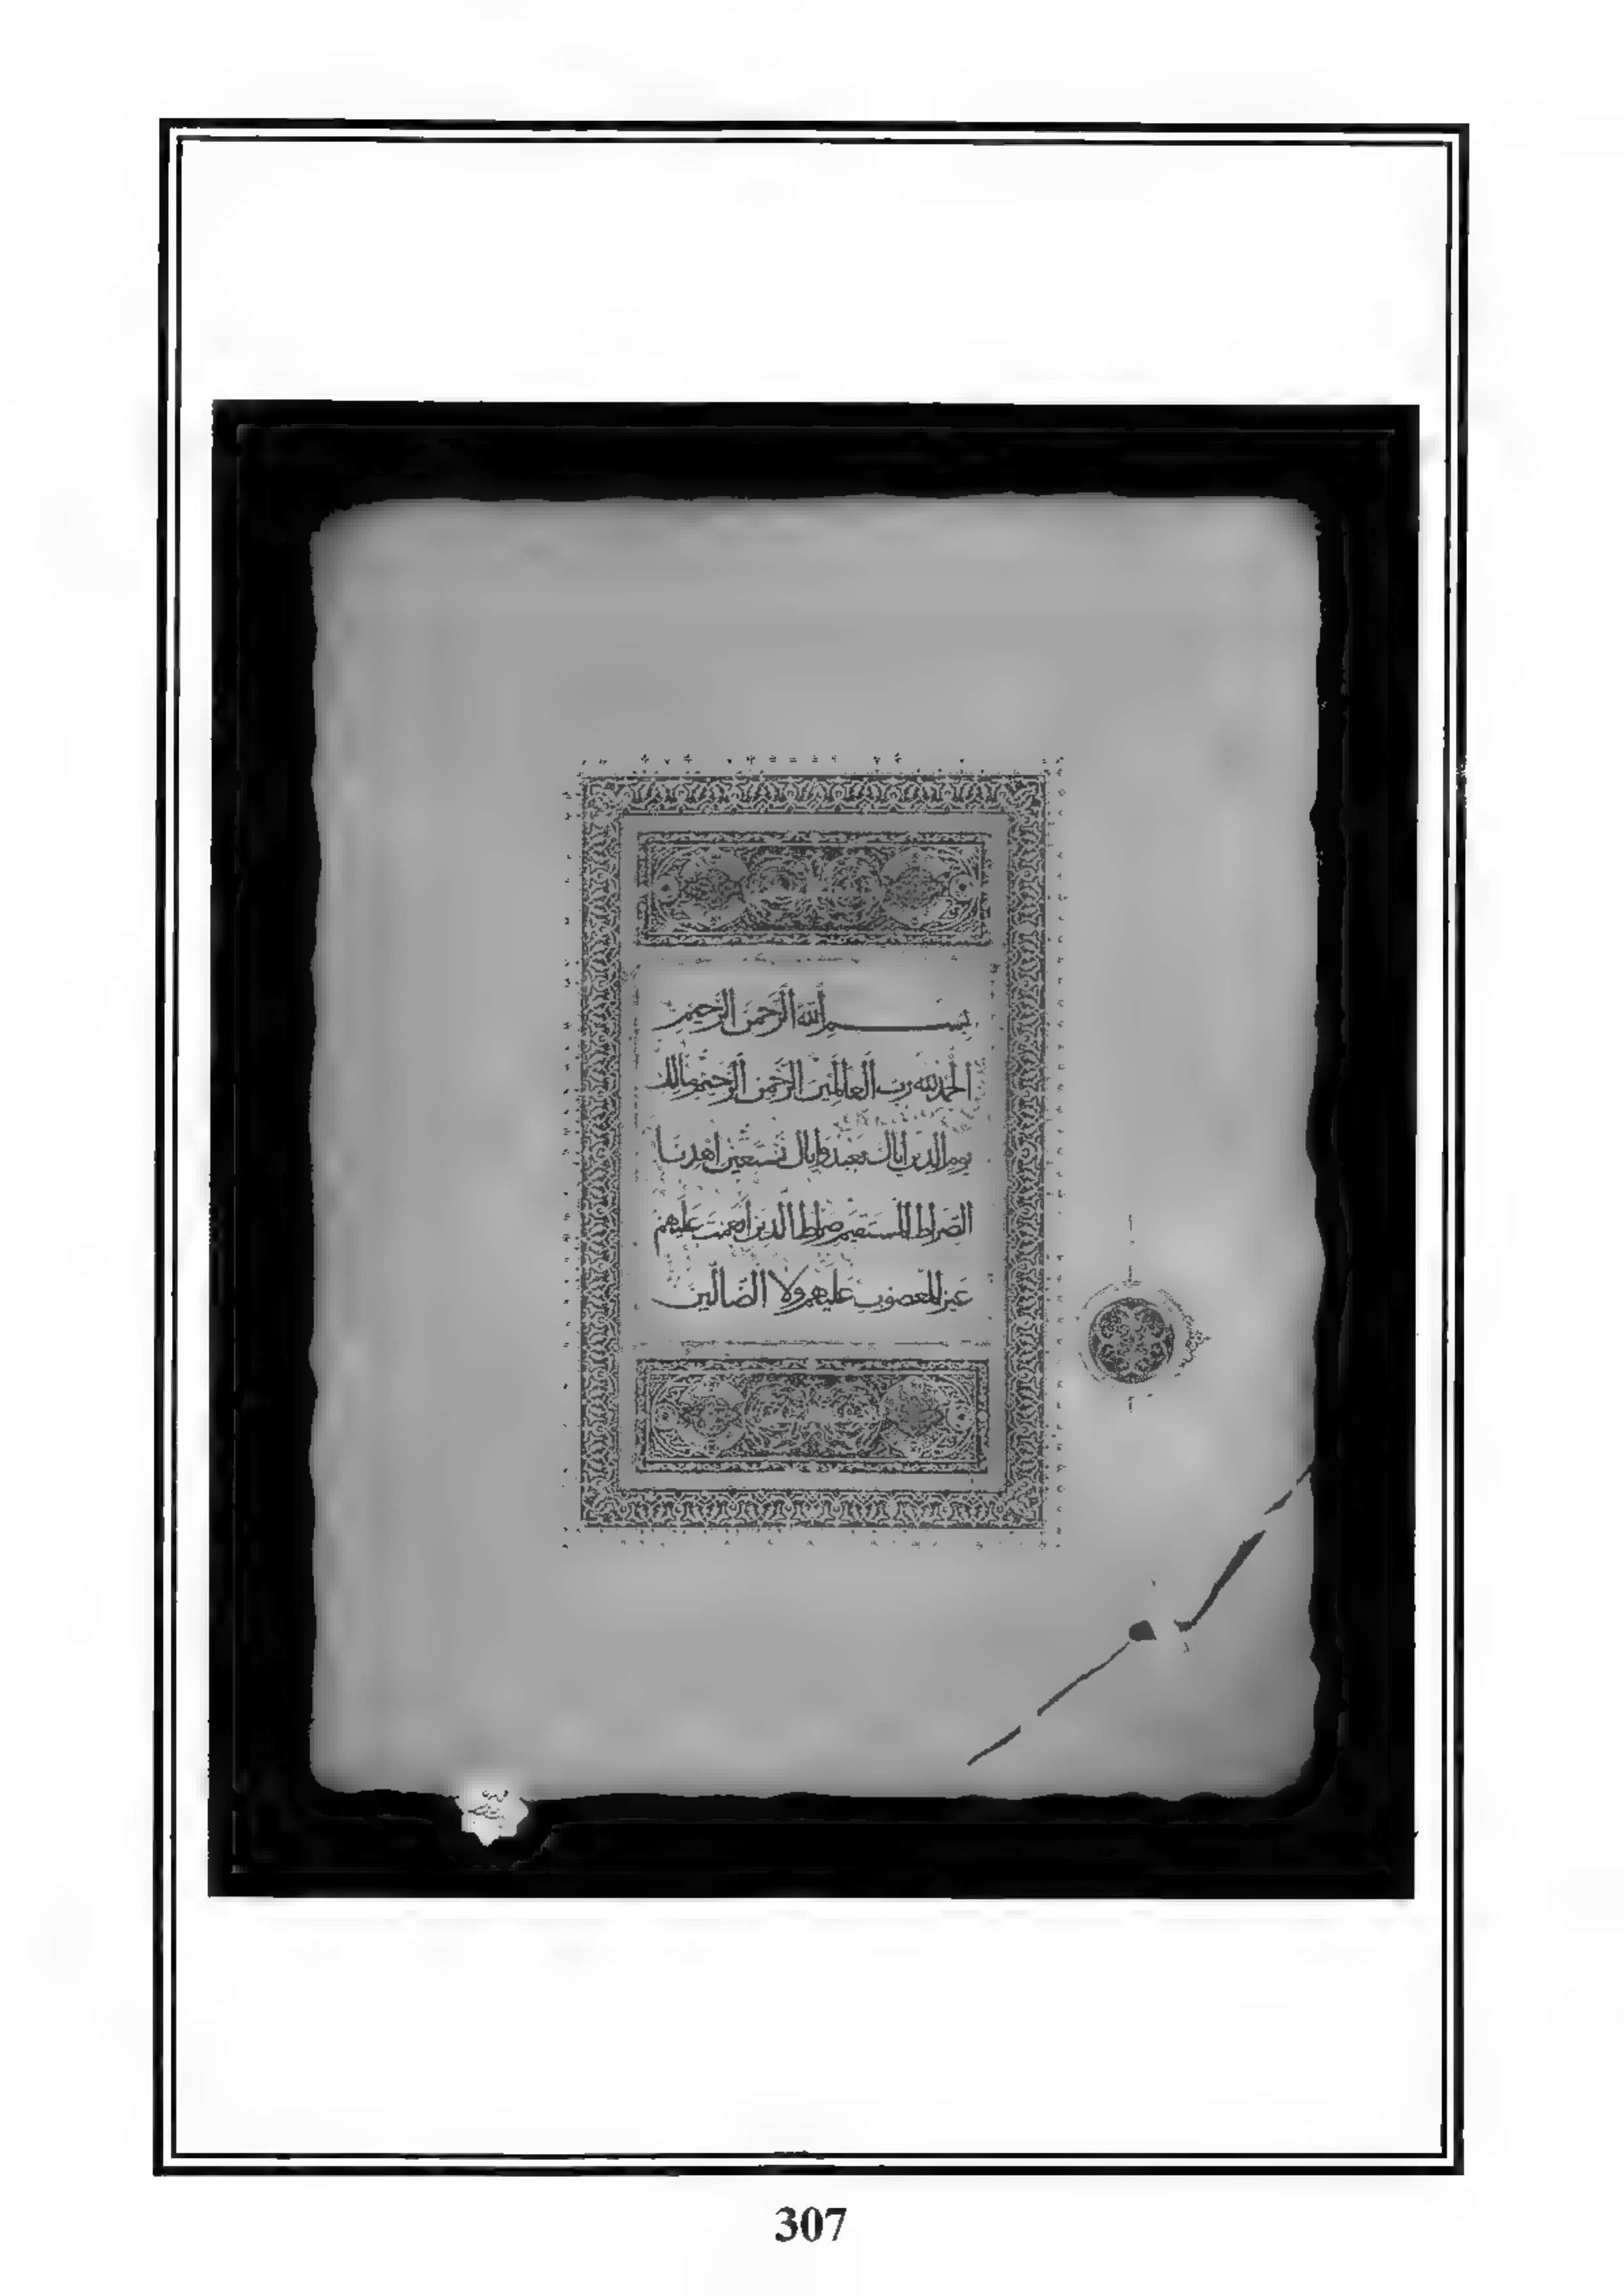 بسم الله الرحمن الرحيم
الحمد لله رب العالمين الرحمن الرحيم مالك
يوم الدين اياك نعبد واياك نستعين اهدنا
الصراط المستقيم صراط الذين انعمت عليهم
غير المغضوب عليهم ولا الضالين
307